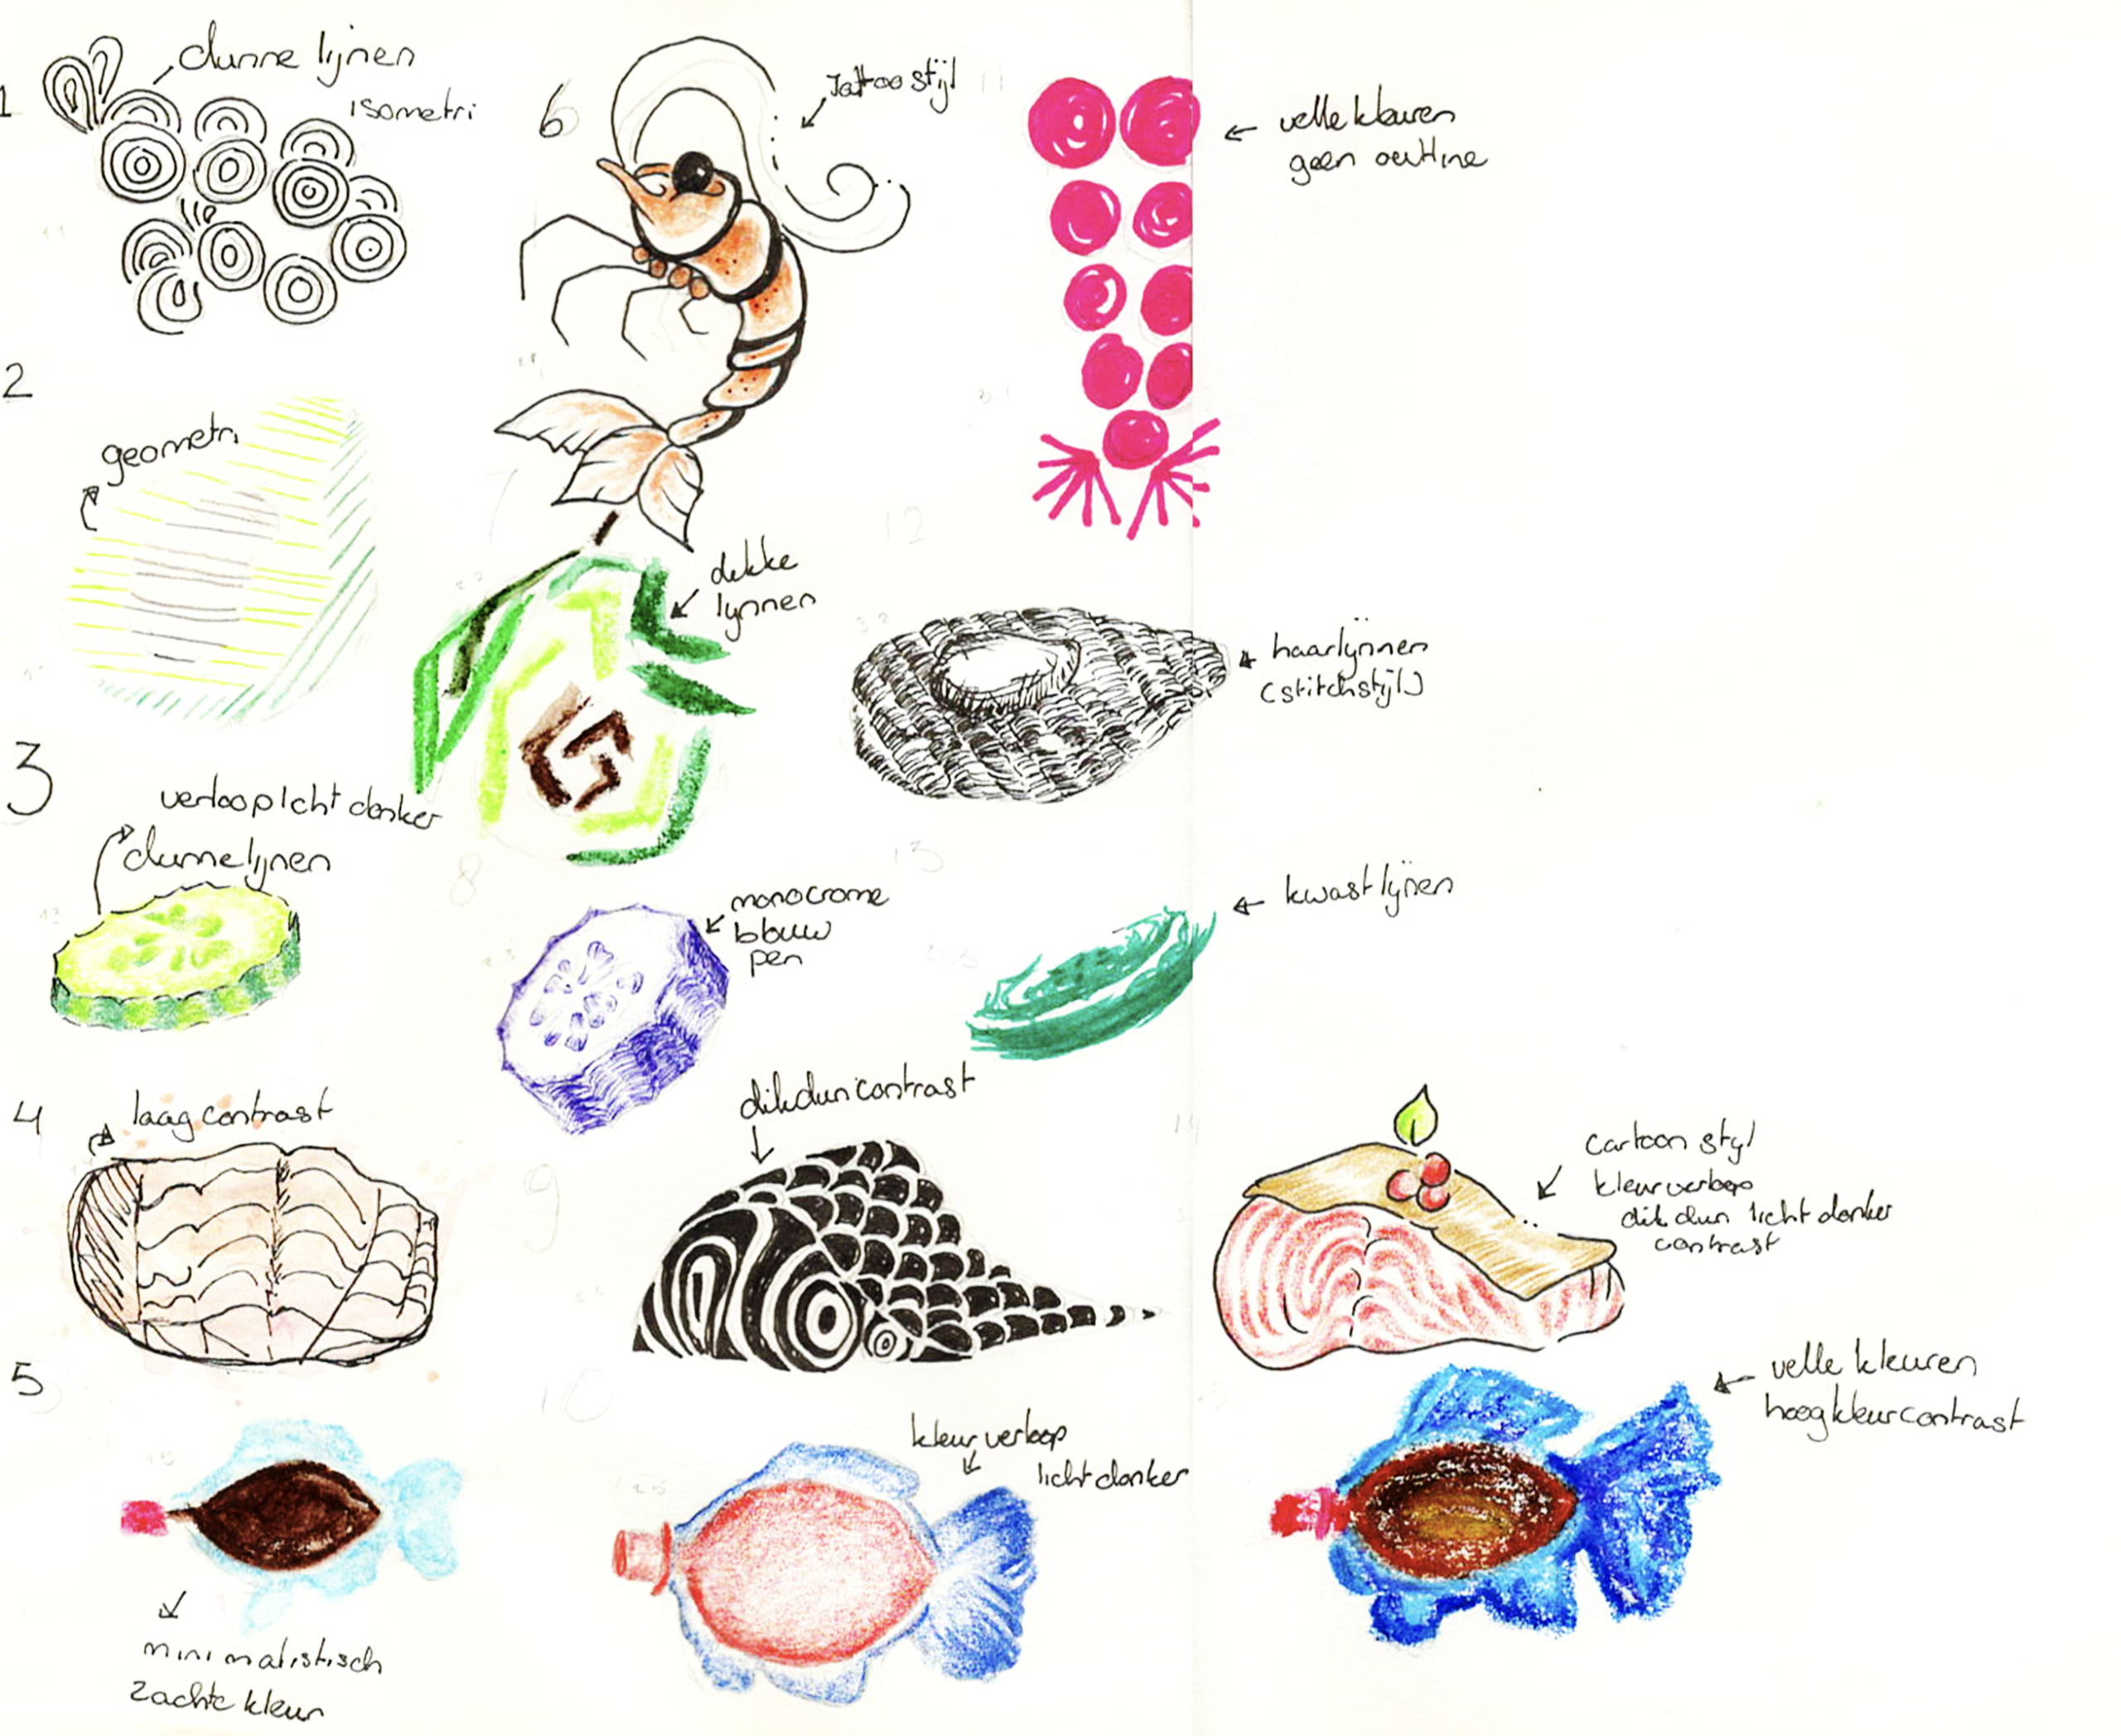 1
dunne lijnen
isometri
2
geometri
3
verloop licht donker
dunne lijnen
4
laag contrast
5
minimalistisch
zachte kleur
6
Tattoo stijl
7
dikke
lijnen
8
monocrome
blauw
pen
9
dik dun contrast
10
kleur verloop
licht donker
11
velle kleuren
geen outline
12
haarlijnen
(stitchstijl)
13
kwast lijnen
14
cartoon styl
kleur verloop
dik dun licht donker
contrast
velle kleuren
hoog kleur contrast